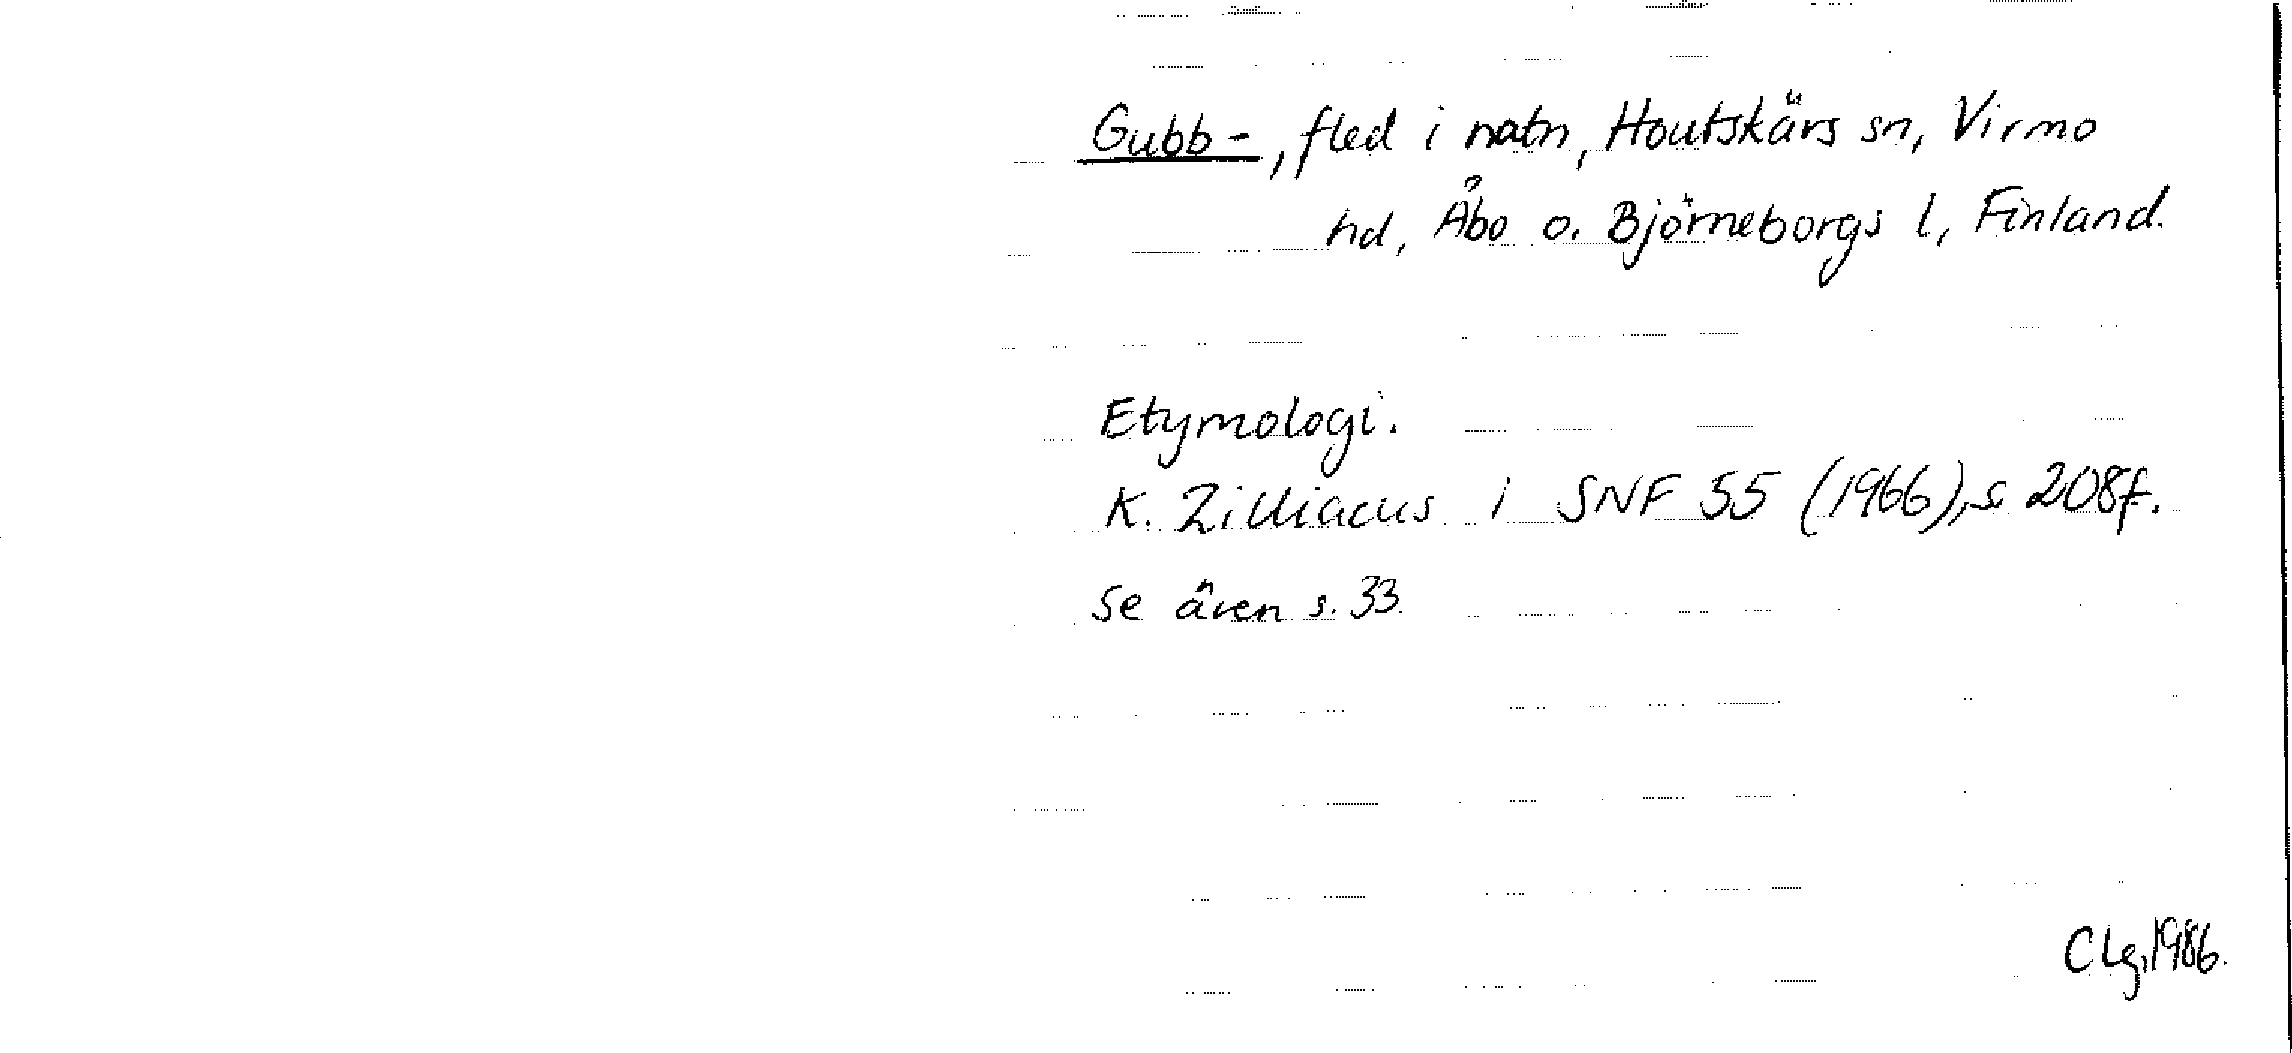 Gubb-, fled i natn, Houtskärs sn, Virmo
hd, Åbo o. Björneborgs l, Finland.
Etymologi.
K. Zilliacus i SNF 55 (1966), s 208f.
Se även s. 33.
CLg, 1986.